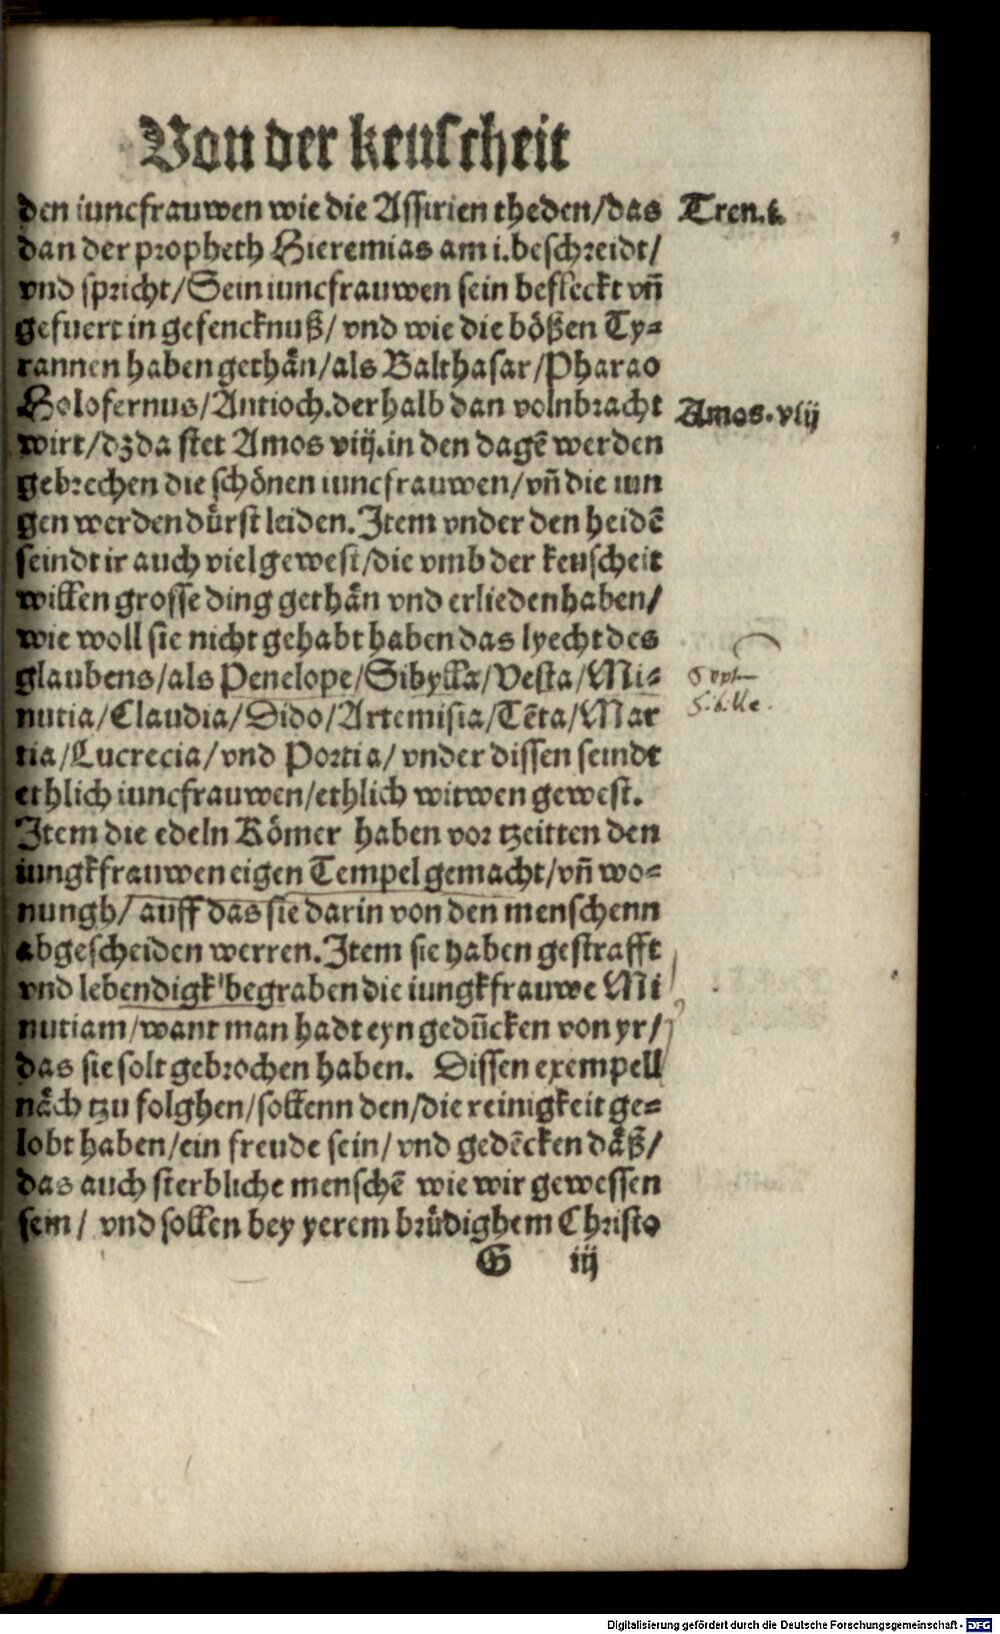 Von der keuscheit
den iuncfrauwen wie die Assirien theden/das
Tren.i.
dan der propheth Hieremias am i.beschreidt/
vnd spricht/Sein iuncfrauwen sein befleckt vñ
gefuert in gefencknuß/ vnd wie die bößen Ty⸗
rannen haben gethån/als Balthasar/Pharao
Holofernus/Antioch.derhalb dan volnbracht
Amos.viij
wirt/dz da stet Amos viij.in den dagẽ werden
gebrechen die schönen iuncfrauwen/vñ die iun
gen werden dürst leiden.Item vnder den heidẽ
seindt ir auch viel gewest/die vmb der keuscheit
willen grosse ding gethån vnd erlieden haben/
wie woll sie nicht gehabt haben das lyecht des
glaubens/als Penelope/Sibylla/Vesta/Mi⸗
Sibille.
nutia/Claudia/Dido/Artemisia/Tẽta/Mar
tia/Lucrecia/vnd Portia/ vnder dissen seindt
ethlich iuncfrauwen/ethlich witwen gewest.
Item die edeln Römer haben vor tzeitten den
iungkfrauwen eigen Tempel gemacht/vñ wo⸗
nungh/ auff das sie darin von den menschenn
abgescheiden werren.Item sie haben gestrafft
vnd lebendigk begraben die iungkfrauwe Mi
nutiam/want man hadt eyn gedũcken von yr/
das sie solt gebrochen haben. Dissen exempell
nåch tzu folghen/sollenn den/die reinigkeit ge⸗
lobt haben/ein freude sein/ vnd gedẽcken dåß/
das auch sterbliche menschẽ wie wir gewessen
sein/ vnd sollen bey yerem brüdighem Christo
G iij
Digitalisierung gefördert durch die Deutsche Forschungsgemeinschaft - DFG